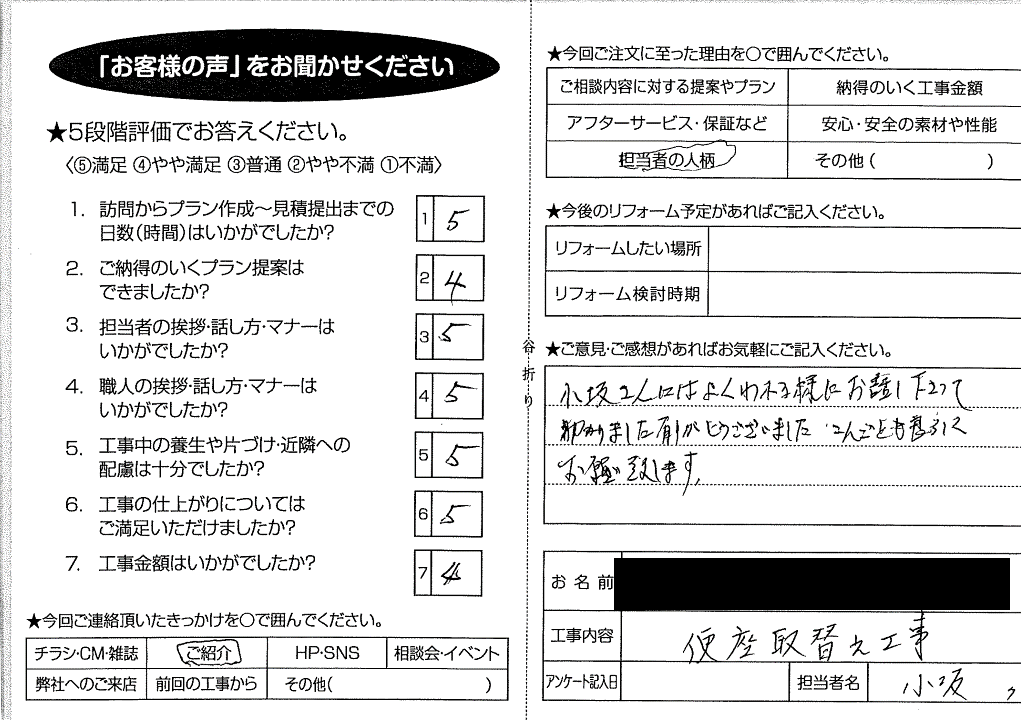 「お客様の声」をお聞かせください
★5段階評価でお答えください。
〈⑤満足 ④やや満足 ③普通 ②やや不満 ①不満〉
1. 訪問からプラン作成～見積提出までの
日数(時間)はいかがでしたか?
1 5
2. ご納得のいくプラン提案は
できましたか?
2 4
3. 担当者の挨拶・話し方・マナーは
いかがでしたか?
3 5
4. 職人の挨拶・話し方・マナーは
いかがでしたか?
4 5
5. 工事中の養生や片づけ・近隣への
配慮は十分でしたか?
5 5
6. 工事の仕上がりについては
ご満足いただけましたか?
6 5
7. 工事金額はいかがでしたか?
7 4
★今回ご連絡頂いたきっかけを○で囲んでください。
チラシ・CM・雑誌 ご紹介 HP・SNS 相談会・イベント
弊社へのご来店 前回の工事から その他( )
谷折り
★今回ご注文に至った理由を○で囲んでください。
ご相談内容に対する提案やプラン 納得のいく工事金額
アフターサービス・保証など 安心・安全の素材や性能
担当者の人柄 その他( )
★今後のリフォーム予定があればご記入ください。
リフォームしたい場所
リフォーム検討時期
★ご意見・ご感想があればお気軽にご記入ください。
小坂さんにはよくわかる様にお話し下さって
ました がとうございました
お願い致します。
お名前
工事内容 便座取替え工事
アンケート記入日 担当者名 小坂